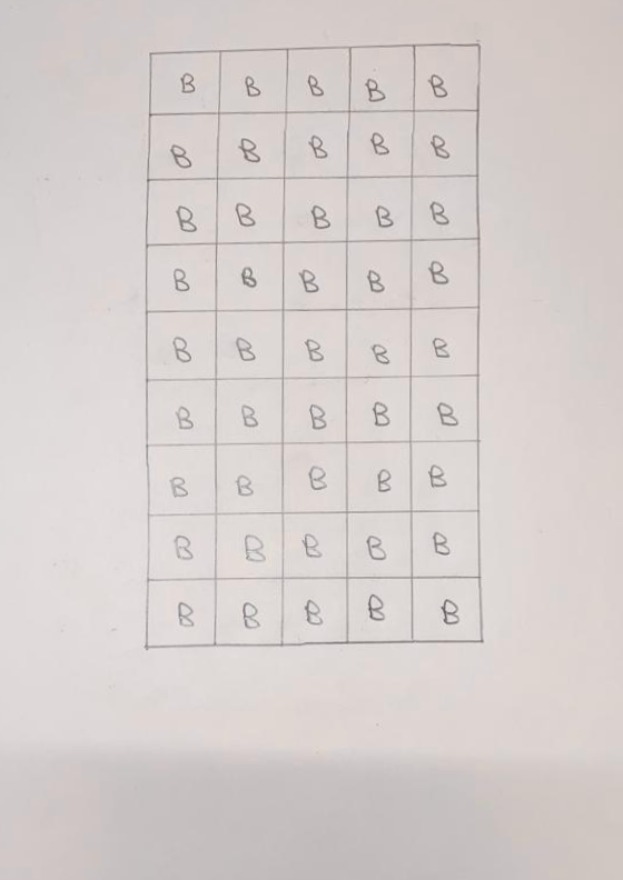 B B B B B
B B B B B
B B B B B
B B B B B
B B B B B
B B B B B
B B B B B
B B B B B
B B B B B